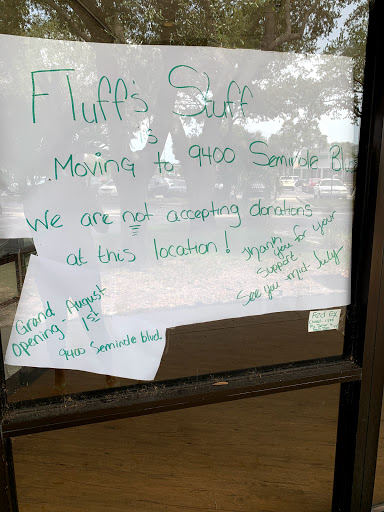 Fluff's Stuff
is
Moving to 9400 Seminole Blvd
We are not accepting donations
at this location!
Thank
you for your
support
See you mid July
Grand
Opening - August
1st
9400 Seminole blvd.
Fed Ex